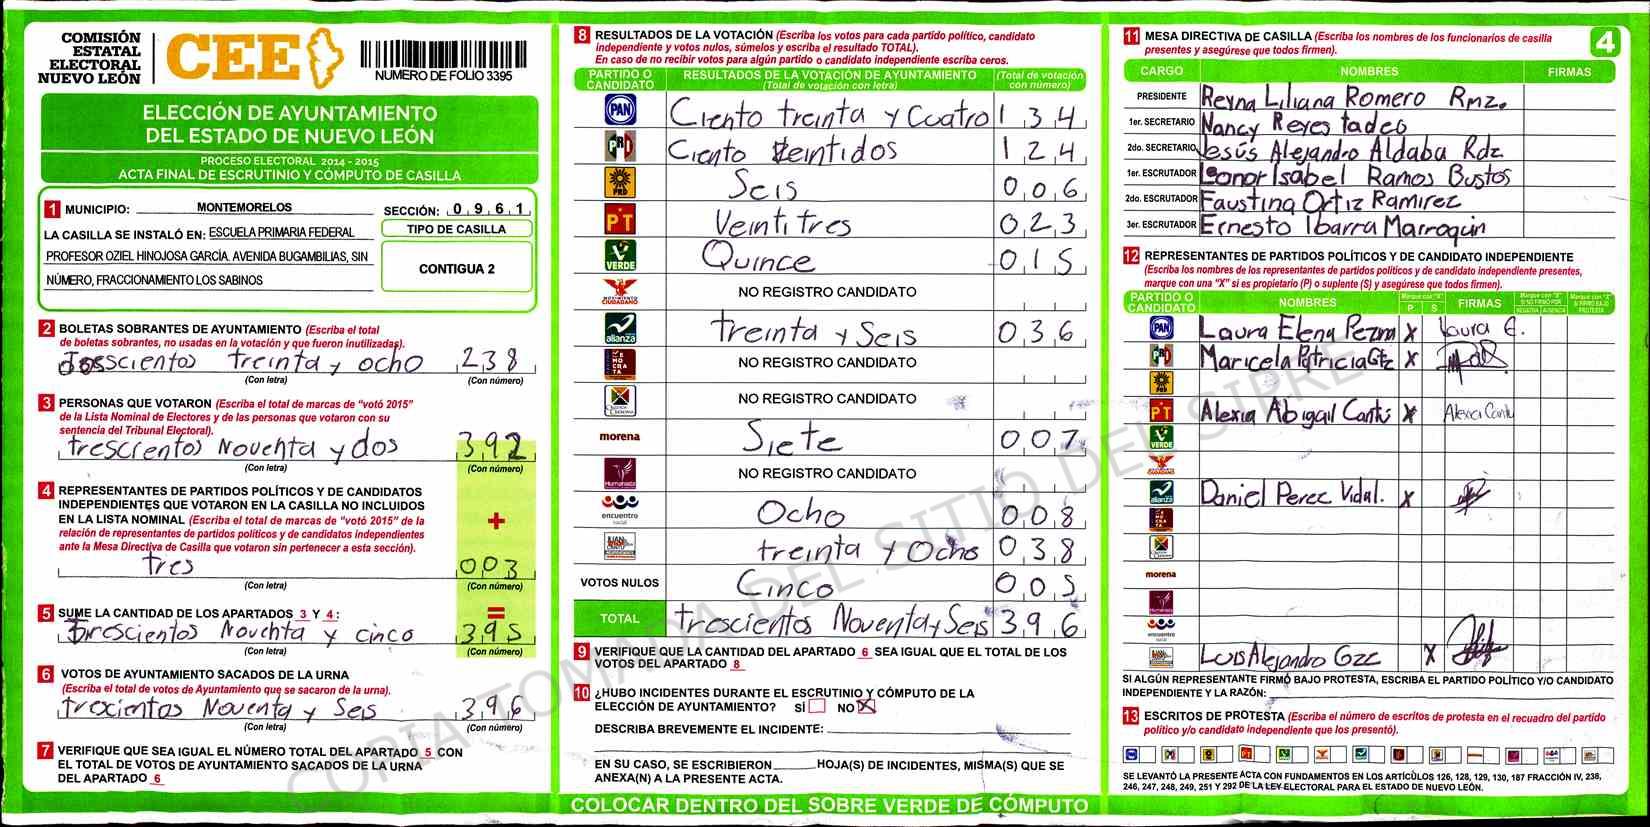 COMISIÓN
ESTATAL
ELECTORAL
NUEVO LEÓN
CEE
NUMERO DE FOLIO 3395
ELECCIÓN DE AYUNTAMIENTO
DEL ESTADO DE NUEVO LEÓN
PROCESO ELECTORAL 2014 - 2015
ACTA FINAL DE ESCRUTINIO Y CÓMPUTO DE CASILLA
1 MUNICIPIO: MONTEMORELOS SECCIÓN: 0961
LA CASILLA SE INSTALÓ EN: ESCUELA PRIMARIA FEDERAL
PROFESOR OZIEL HINOJOSA GARCÍA. AVENIDA BUGAMBILIAS, SIN
NÚMERO, FRACCIONAMIENTO LOS SABINOS
TIPO DE CASILLA
CONTIGUA 2
2 BOLETAS SOBRANTES DE AYUNTAMIENTO (Escriba el total
de boletas sobrantes, no usadas en la votación y que fueron inutilizadas).
treinta y ocho 238
(Con letra) (Con número)
3 PERSONAS QUE VOTARON (Escriba el total de marcas de “votó 2015”
de la Lista Nominal de Electores y de las personas que votaron con su
sentencia del Tribunal Electoral).
trescientos Noventa y dos 392
(Con letra) (Con número)
4 REPRESENTANTES DE PARTIDOS POLÍTICOS Y DE CANDIDATOS
INDEPENDIENTES QUE VOTARON EN LA CASILLA NO INCLUIDOS
EN LA LISTA NOMINAL (Escriba el total de marcas de “votó 2015” de la
relación de representantes de partidos políticos y de candidatos independientes
ante la Mesa Directiva de Casilla que votaron sin pertenecer a esta sección).
+
tres 003
(Con letra) (Con número)
5 SUME LA CANTIDAD DE LOS APARTADOS 3 Y 4: =
trescientos Noventa y cinco 395
(Con letra) (Con número)
6 VOTOS DE AYUNTAMIENTO SACADOS DE LA URNA
(Escriba el total de votos de Ayuntamiento que se sacaron de la urna).
trescientos Noventa y Seis 396
(Con letra) (Con número)
7 VERIFIQUE QUE SEA IGUAL EL NÚMERO TOTAL DEL APARTADO 5 CON
EL TOTAL DE VOTOS DE AYUNTAMIENTO SACADOS DE LA URNA
DEL APARTADO 6
8 RESULTADOS DE LA VOTACIÓN (Escriba los votos para cada partido político, candidato
independiente y votos nulos, súmelos y escriba el resultado TOTAL).
En caso de no recibir votos para algún partido o candidato independiente escriba ceros.
PARTIDO O CANDIDATO RESULTADOS DE LA VOTACIÓN DE AYUNTAMIENTO (Total de votación con letra) (Total de votación con número)
PAN Ciento treinta y Cuatro 134
PRD Ciento Veintidos 124
PRD Seis 006
PT Veintitres 023
VERDE Quince 015
MOVIMIENTO CIUDADANO NO REGISTRO CANDIDATO
alianza treinta y Seis 036
NO REGISTRO CANDIDATO
NO REGISTRO CANDIDATO
morena Siete 007
Humanista NO REGISTRO CANDIDATO
encuentro social Ocho 008
treinta y Ocho 038
VOTOS NULOS Cinco 005
TOTAL trescientos Noventa y Seis 396
9 VERIFIQUE QUE LA CANTIDAD DEL APARTADO 6 SEA IGUAL QUE EL TOTAL DE LOS
VOTOS DEL APARTADO 8
10 ¿HUBO INCIDENTES DURANTE EL ESCRUTINIO Y CÓMPUTO DE LA
ELECCIÓN DE AYUNTAMIENTO? SÍ NO X
DESCRIBA BREVEMENTE EL INCIDENTE:
EN SU CASO, SE ESCRIBIERON HOJA(S) DE INCIDENTES, MISMA(S) QUE SE
ANEXA(N) A LA PRESENTE ACTA.
COLOCAR DENTRO DEL SOBRE VERDE DE CÓMPUTO
11 MESA DIRECTIVA DE CASILLA (Escriba los nombres de los funcionarios de casilla
presentes y asegúrese que todos firmen).
4
CARGO NOMBRES FIRMAS
PRESIDENTE Reyna Liliana Romero Rmz.
1er. SECRETARIO Nancy Reyes tadeo
2do. SECRETARIO Jesús Alejandro Aldaba Rdz
1er. ESCRUTADOR Leonor Isabel Ramos Bustos
2do. ESCRUTADOR Faustina Ortiz Ramirez
3er. ESCRUTADOR Ernesto Ibarra Marroquin
12 REPRESENTANTES DE PARTIDOS POLÍTICOS Y DE CANDIDATO INDEPENDIENTE
(Escriba los nombres de los representantes de partidos políticos y de candidato independiente presentes,
marque con una “X” si es propietario (P) o suplente (S) y asegúrese que todos firmen).
PARTIDO O CANDIDATO NOMBRES Marque con “X” P S FIRMAS Marque con “X” SI NO FIRMÓ POR NEGATIVA AUSENCIA Marque con “X” SI FIRMÓ BAJO PROTESTA
PAN Laura Elena X Laura E.
Maricela Patricia Gtz X
PRD
PT Alexia Abigail Cantú X Alexia Cantu
VERDE
alianza Daniel Perez Vidal. X
morena
encuentro social
Luis Alejandro Gzz X
SI ALGÚN REPRESENTANTE FIRMÓ BAJO PROTESTA, ESCRIBA EL PARTIDO POLÍTICO Y/O CANDIDATO
INDEPENDIENTE Y LA RAZÓN:
13 ESCRITOS DE PROTESTA (Escriba el número de escritos de protesta en el recuadro del partido
político y/o candidato independiente que los presentó).
SE LEVANTÓ LA PRESENTE ACTA CON FUNDAMENTOS EN LOS ARTÍCULOS 126, 128, 129, 130, 187 FRACCIÓN IV, 238,
246, 247, 248, 249, 251 Y 292 DE LA LEY ELECTORAL PARA EL ESTADO DE NUEVO LEÓN.
COPIA TOMADA DEL SITIO DEL SIPRE